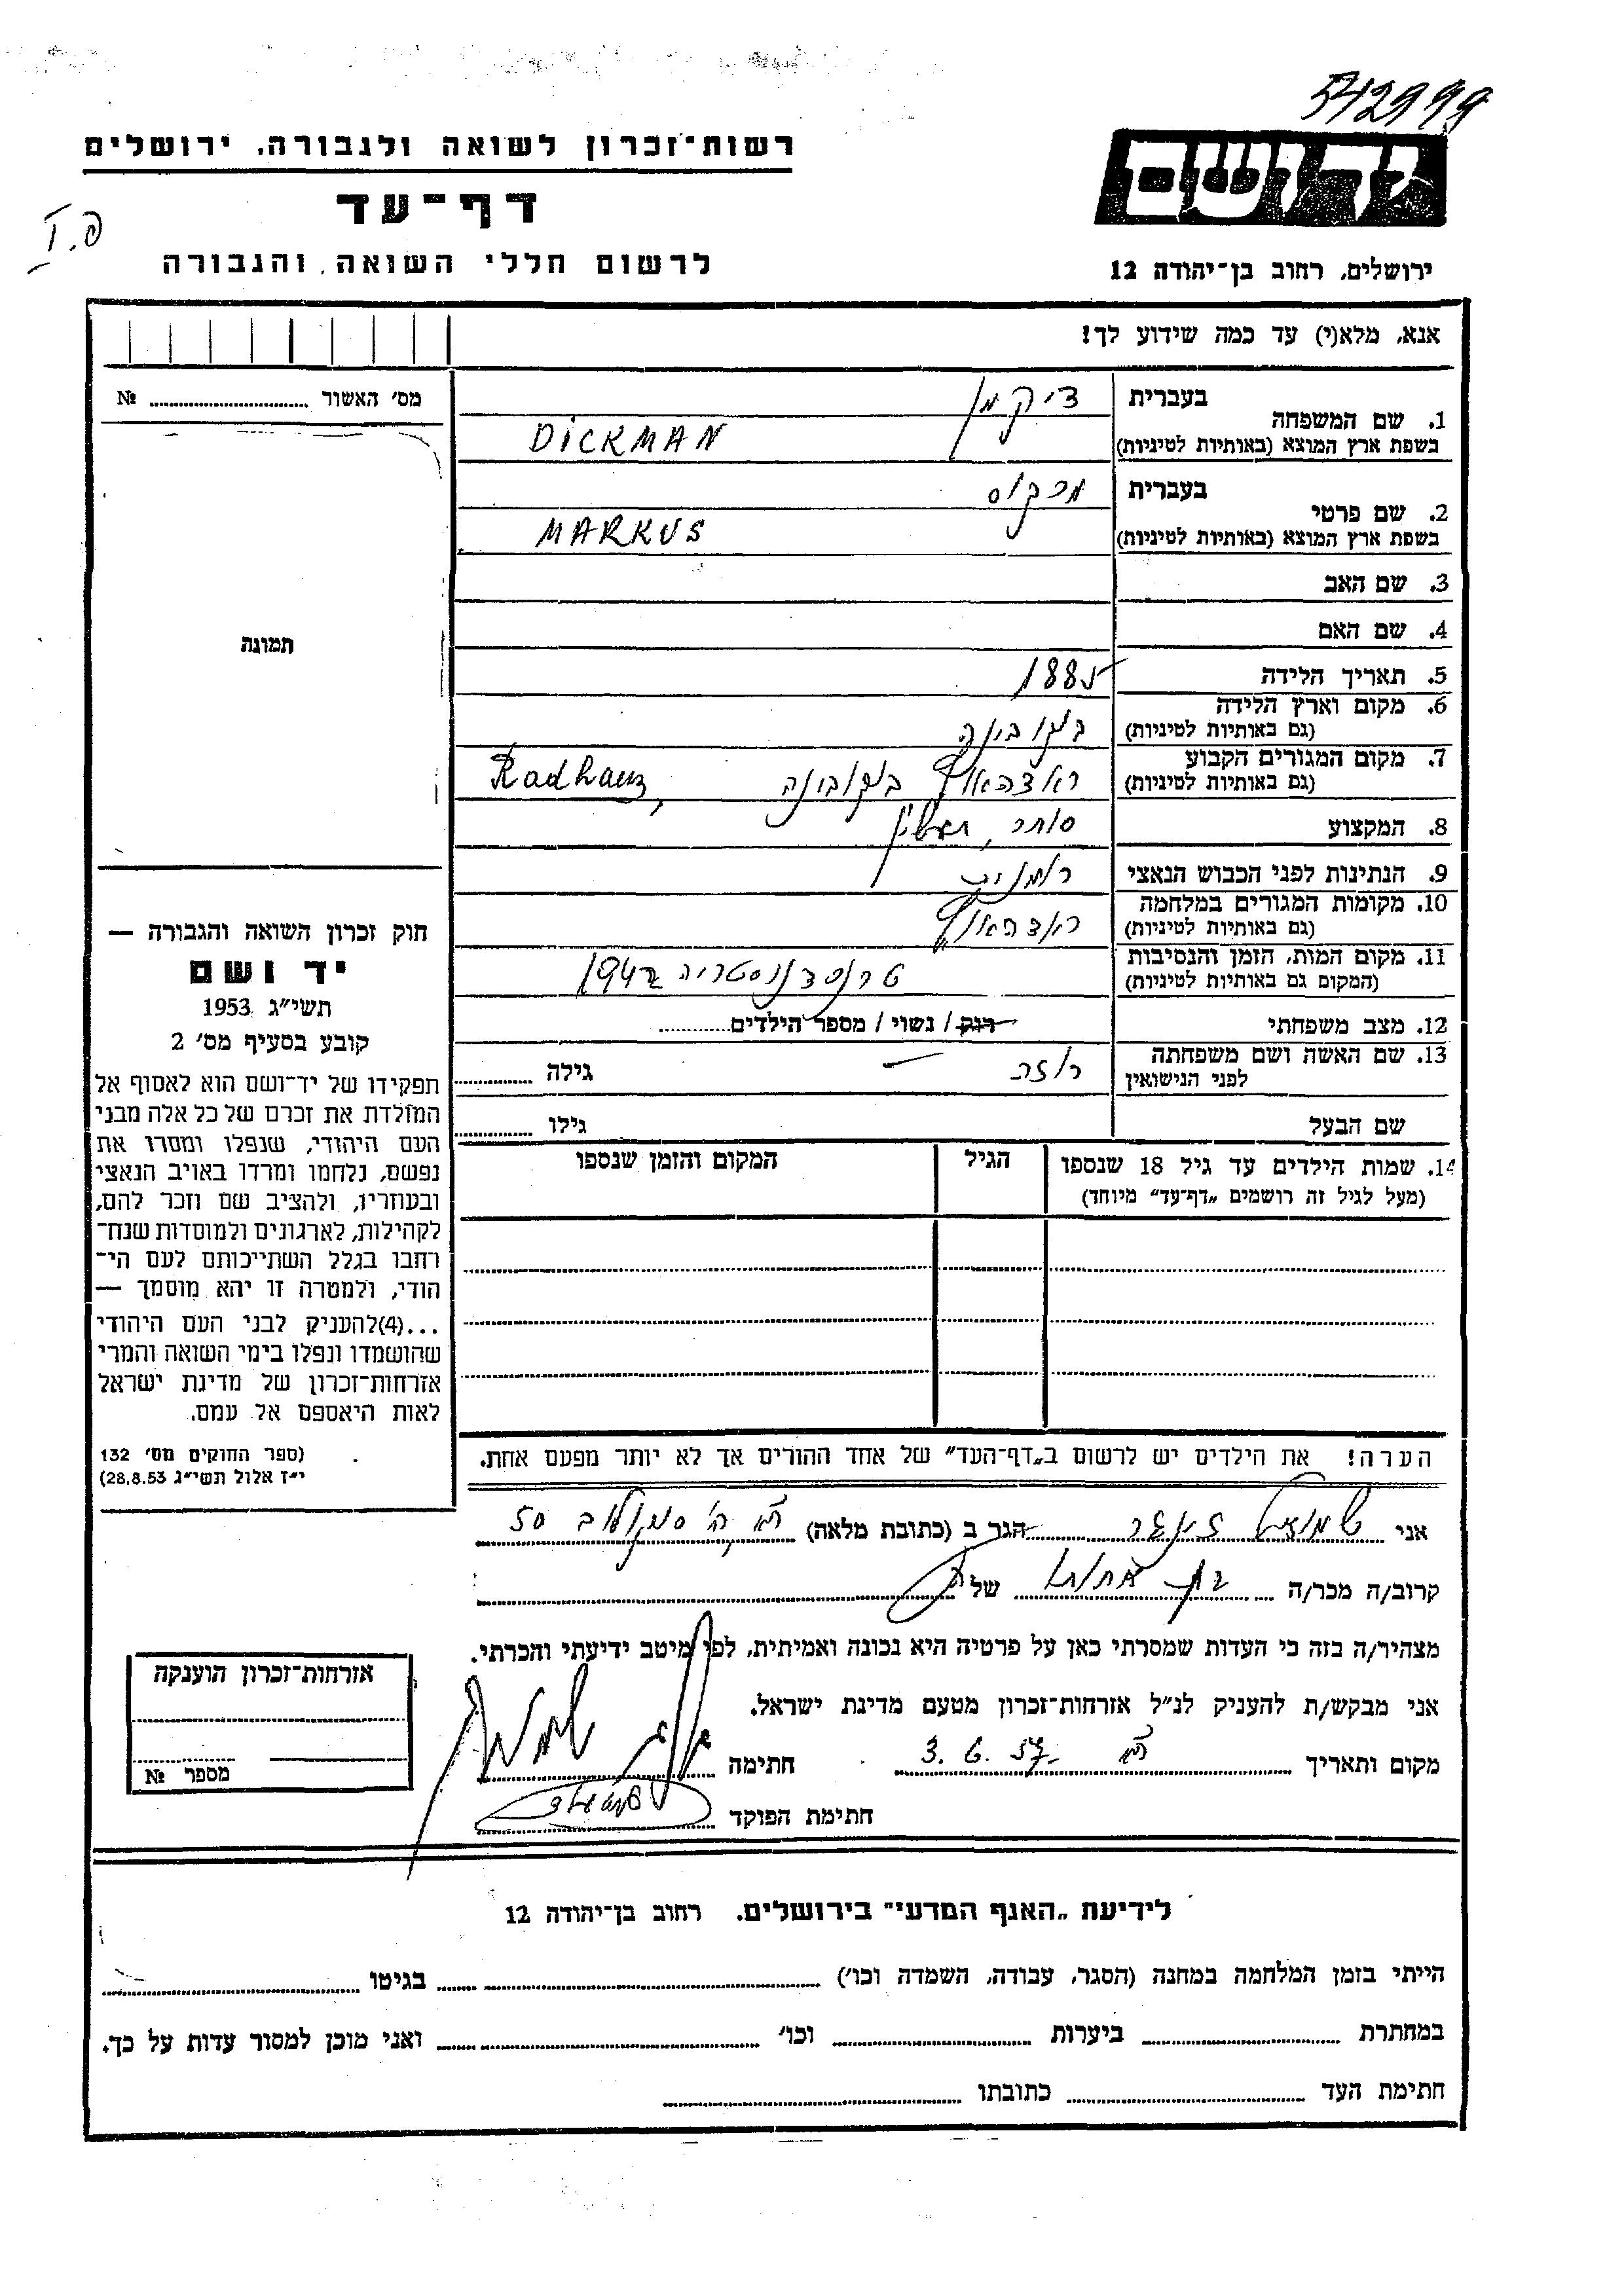 542999
רשות־זכרון לשואה ולגבורה, ירושלים
יד ושם
דף־עד
פ.I
לרשום חללי השואה והגבורה
ירושלים, רחוב בן־יהודה 12
אנא, מלא(י) עד כמה שידוע לך!
מס' האשור № 
1. שם המשפחה
בעברית דיקמן
בשפת ארץ המוצא (באותיות לטיניות) DICKMAN
2. שם פרטי
בעברית מרקוס
בשפת ארץ המוצא (באותיות לטיניות) MARKUS
3. שם האב
4. שם האם
תמונה
5. תאריך הלידה 1885
6. מקום וארץ הלידה
(גם באותיות לטיניות) בוקובינה
7. מקום המגורים הקבוע
(גם באותיות לטיניות) ראדהאוץ בוקובינה, Radhauz
8. המקצוע סוחר,
9. הנתינות לפני הכבוש הנאצי רומנית
10. מקומות המגורים במלחמה
(גם באותיות לטיניות) ראדהאוץ
11. מקום המות, הזמן והנסיבות
(המקום גם באותיות לטיניות) טרנסדניסטריה 1942
12. מצב משפחתי רווק / נשוי / מספר הילדים
13. שם האשה ושם משפחתה
לפני הנישואין רוזה — גילה
שם הבעל גילו
14. שמות הילדים עד גיל 18 שנספו הגיל המקום והזמן שנספו
(מעל לגיל זה רושמים „דף־עד" מיוחד)
חוק זכרון השואה והגבורה —
יד ושם
תשי"ג 1953
קובע בסעיף מס' 2
תפקידו של יד־ושם הוא לאסוף אל
המולדת את זכרם של כל אלה מבני
העם היהודי, שנפלו ומסרו את
נפשם, נלחמו ומרדו באויב הנאצי
ובעוזריו, ולהציב שם וזכר להם,
לקהילות, לארגונים ולמוסדות שנח־
רבו בגלל השתייכותם לעם הי־
הודי, ולמטרה זו יהא מוסמך —
...(4)להעניק לבני העם היהודי
שהושמדו ונפלו בימי השואה והמרי
אזרחות־זכרון של מדינת ישראל
לאות היאספם אל עמם.
(ספר החוקים מס' 132
י"ז אלול תשי"ג 28.8.53)
הערה! את הילדים יש לרשום ב„דף־העד" של אחד ההורים אך לא יותר מפעם אחת.
אני שמואל זינגר הגר ב (כתובת מלאה) 50
קרוב/ה מכר/ה של
מצהיר/ה בזה כי העדות שמסרתי כאן על פרטיה היא נכונה ואמיתית, לפי מיטב ידיעתי והכרתי.
אני מבקש/ת להעניק לנ"ל אזרחות־זכרון מטעם מדינת ישראל.
מקום ותאריך 3.6.57 חתימה
חתימת הפוקד
אזרחות־זכרון הוענקה
מספר №
לידיעת „האגף המדעי" בירושלים, רחוב בן־יהודה 12
הייתי בזמן המלחמה במחנה (הסגר, עבודה, השמדה וכו') בגיטו
במחתרת ביערות וכו' ואני מוכן למסור עדות על כך.
חתימת העד כתובתו